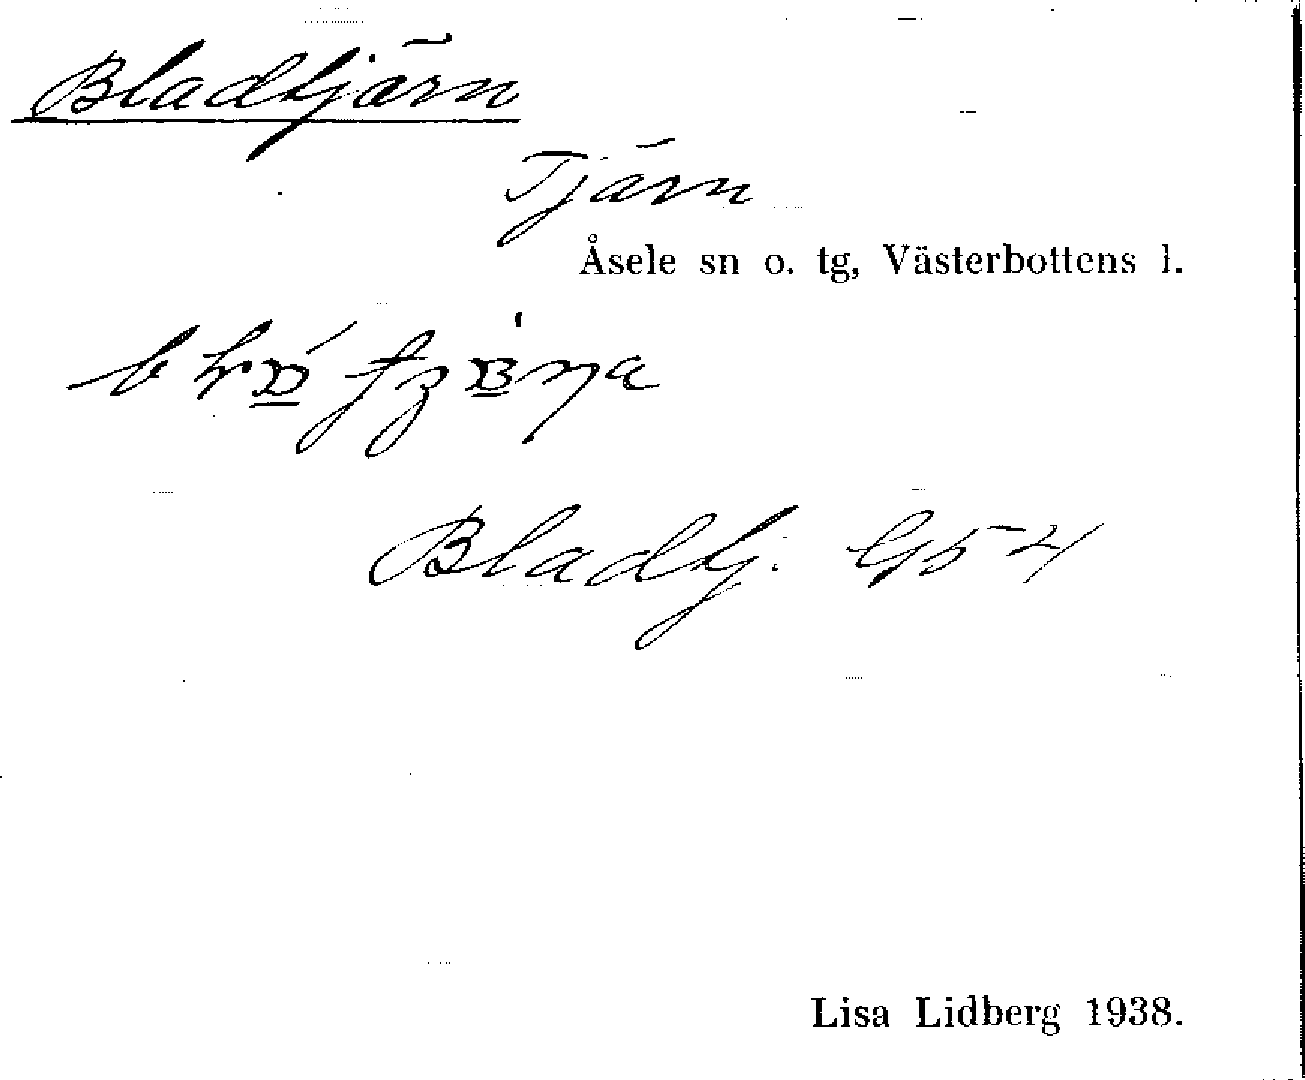 Bladtjärn
Tjärn
Åsele sn o. tg, Västerbottens l.
Bladtj. G54
Lisa Lidberg 1938.